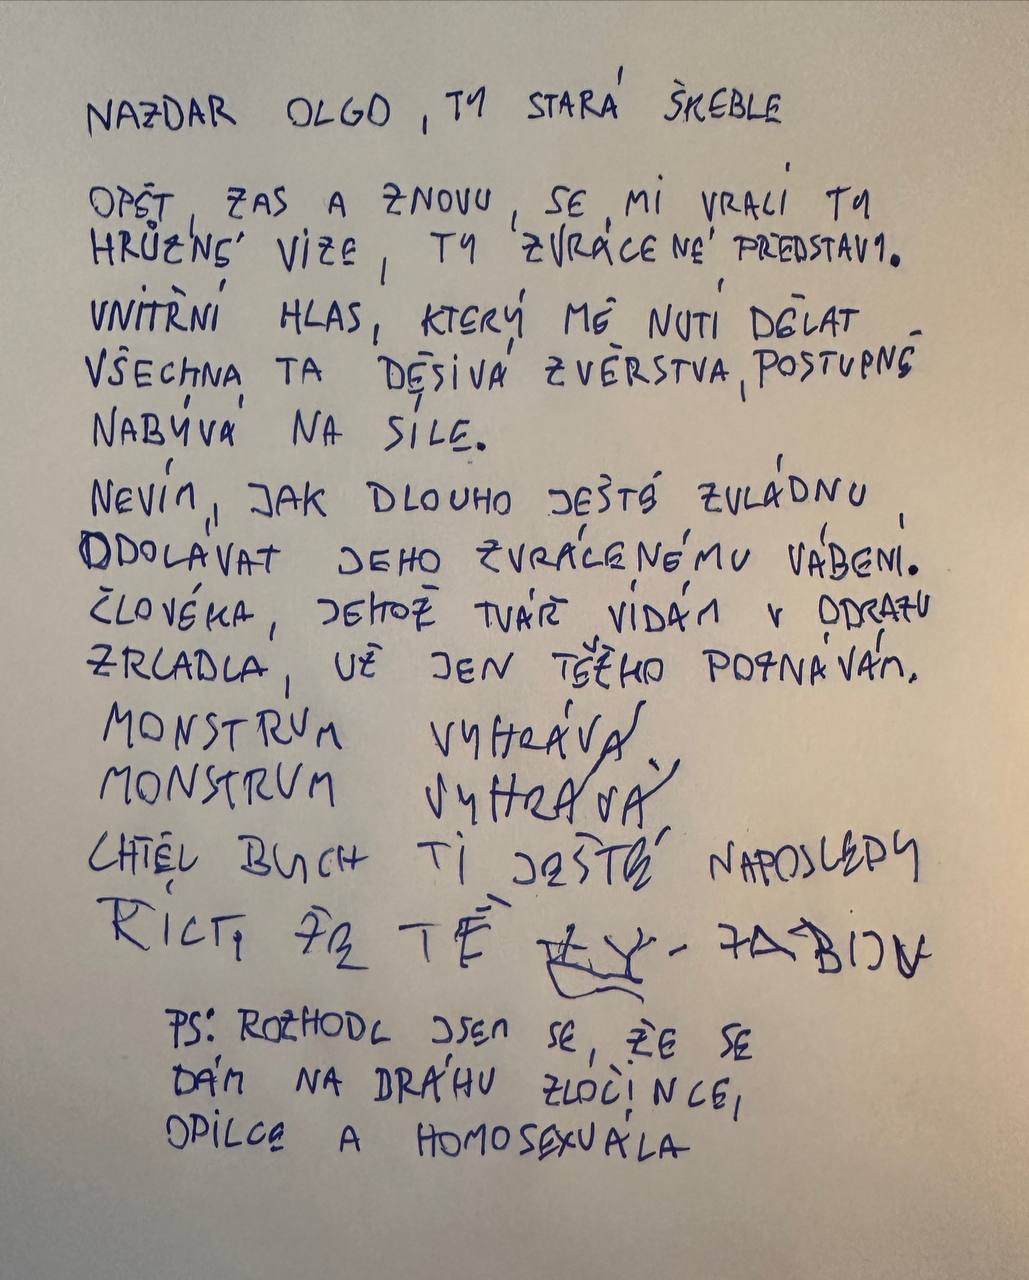 NAZDAR OLGO, TY STARÁ ŠKEBLE
OPĚT, ZAS A ZNOVU, SE MI VRACÍ TY
HRŮZNÉ VIZE, TY ZVRÁCENÉ PŘEDSTAVY.
VNITŘNÍ HLAS, KTERÝ MĚ NUTÍ DĚLAT
VŠECHNA TA DĚSIVÁ ZVĚRSTVA, POSTUPNĚ
NABÝVÁ NA SÍLE.
NEVÍM, JAK DLOUHO JEŠTĚ ZVLÁDNU
ODOLÁVAT JEHO ZVRÁCENÉMU VÁBENÍ.
ČLOVĚKA, JEHOŽ TVÁŘ VÍDÁM V ODRAZU
ZRCADLA, UŽ JEN TĚŽKO POZNÁVÁM.
MONSTRUM VYHRÁVÁ
MONSTRUM VYHRÁVÁ
CHTĚL BYCH TI JEŠTĚ NAPOSLEDY
ŘÍCT, ŽE TĚ - ZABIJU
PS: ROZHODL JSEM SE, ŽE SE
DÁM NA DRÁHU ZLOČINCE,
OPILCE A HOMOSEXUÁLA